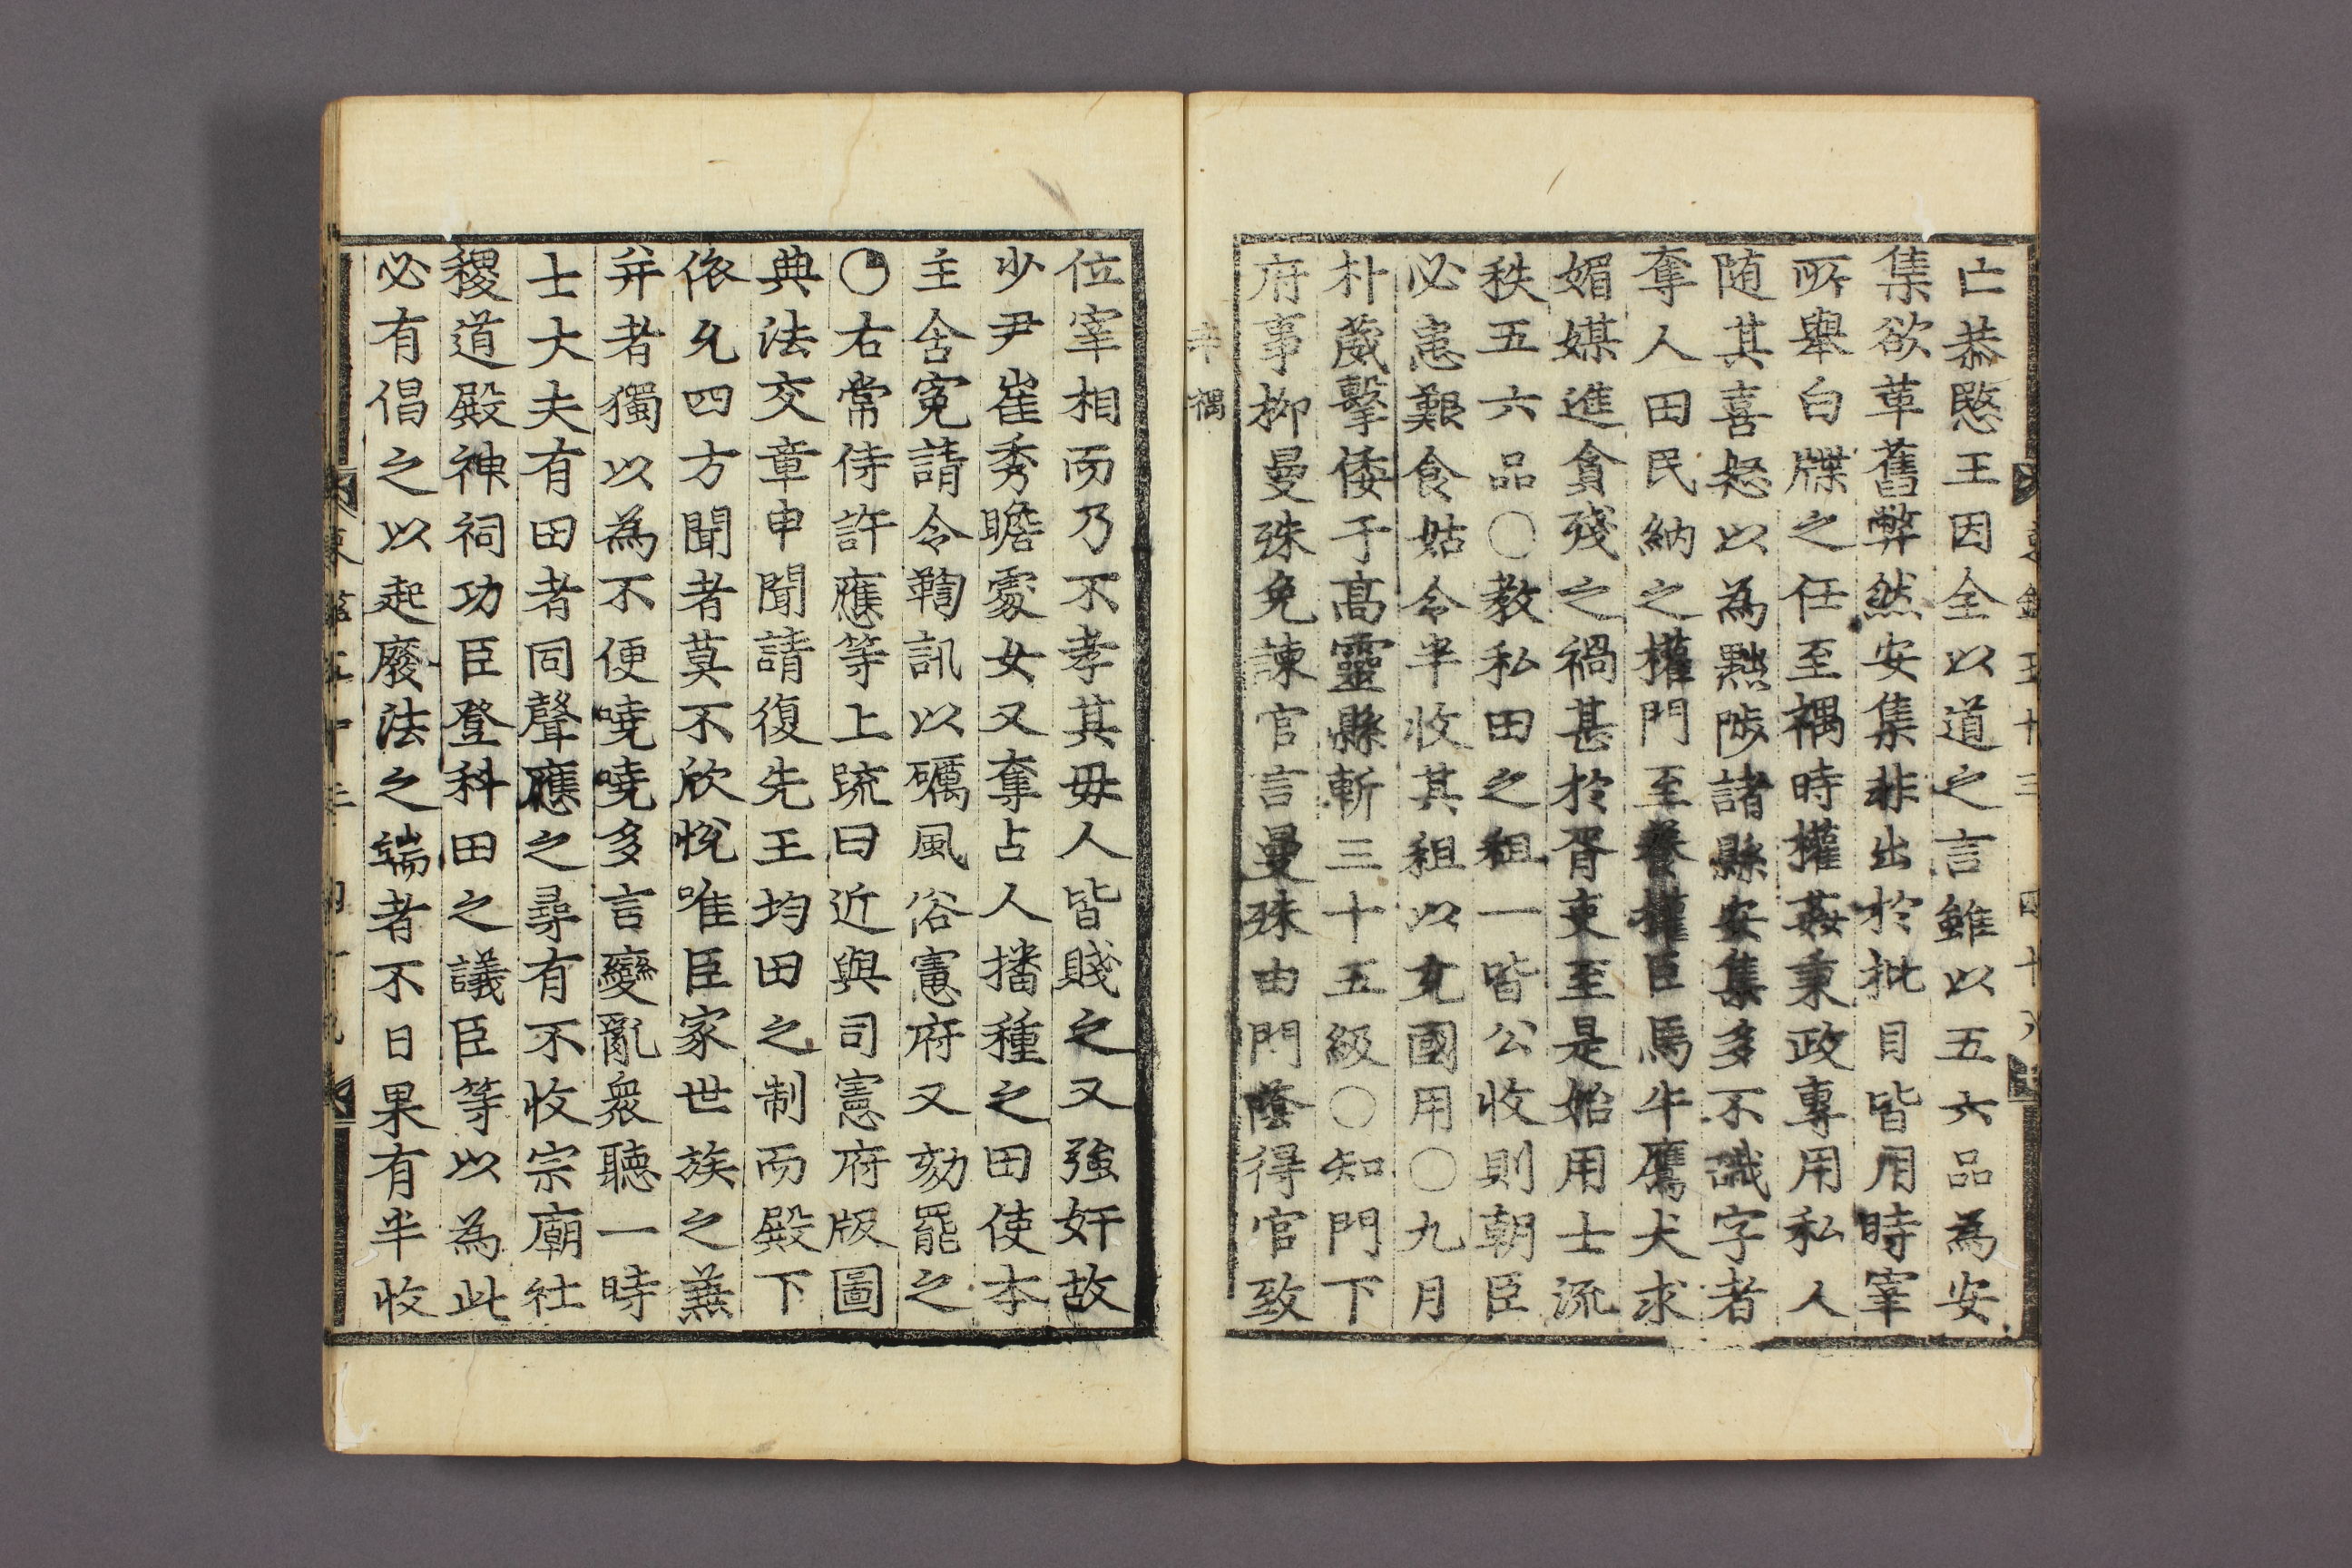 亡恭愍王因全以道之言雖以五六品為安
集欲革舊弊然安集非出於批目皆用時宰
所舉白牒之任至禑時權姦秉政專用私人
随其喜怒以為黜陟諸縣安集多不識字者
奪人田民納之權門至養權臣馬牛鷹犬求
媚媒進貪殘之禍甚於胥吏至是始用士流
秩五六品〇教私田之租一皆公收則朝臣
必患艱食姑令半收其租以充國用〇九月
朴葳擊倭于高靈縣斬三十五級〇知門下
府事柳曼殊免諫官言曼殊由門蔭得官致
辛禑
位宰相而乃不孝其毋人皆賤之又強奸故
少尹崔秀瞻處女又奪占人播種之田使本
主含寃請令鞫訊以礪風俗憲府又劾罷之
〇右常侍許應等上䟽曰近與司憲府版圖
典法交章申聞請復先王均田之制而殿下
依允四方聞者莫不欣悅唯臣家世族之兼
并者獨以為不便嘵嘵多言變亂衆聽一時
士大夫有田者同聲應之尋有不收宗廟社
稷道殿神祠功臣登科田之議臣等以為此
必有倡之以起廢法之端者不日果有半收